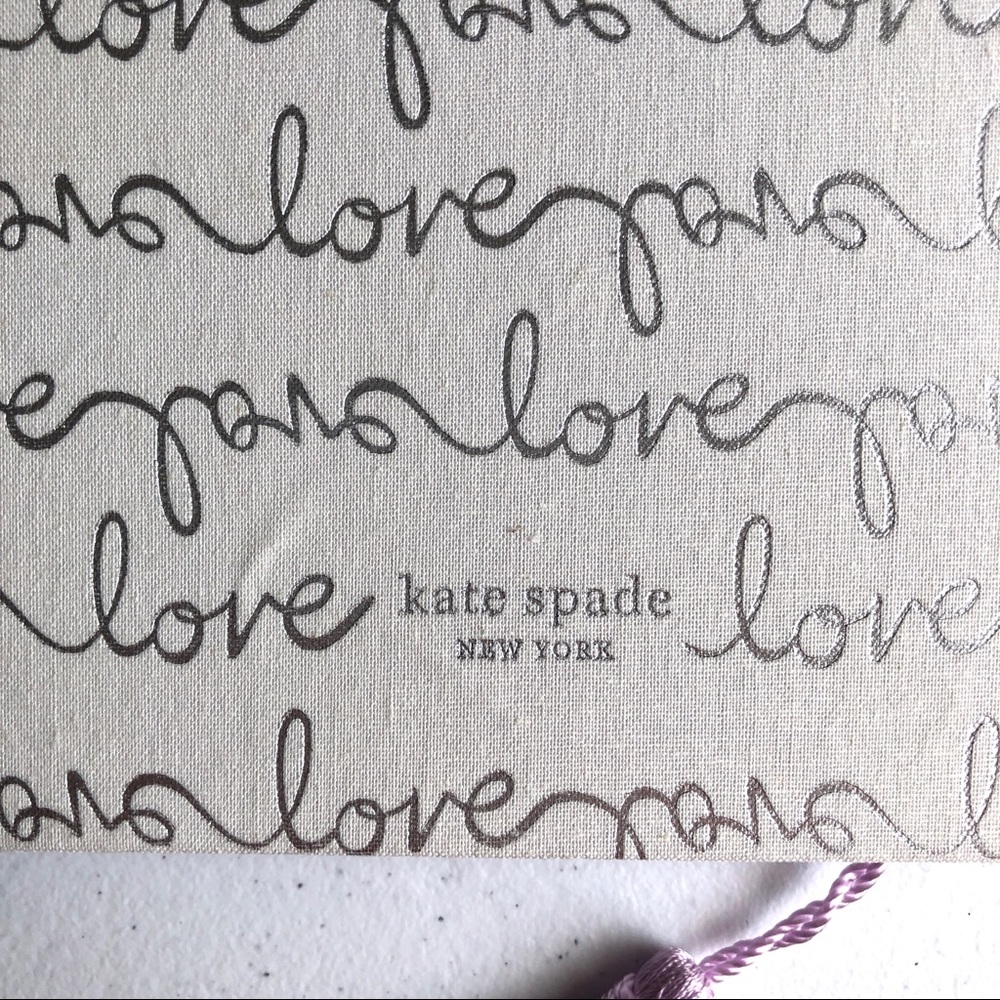 love love love
love love love
love love love
love kate spade love
NEW YORK
love love love